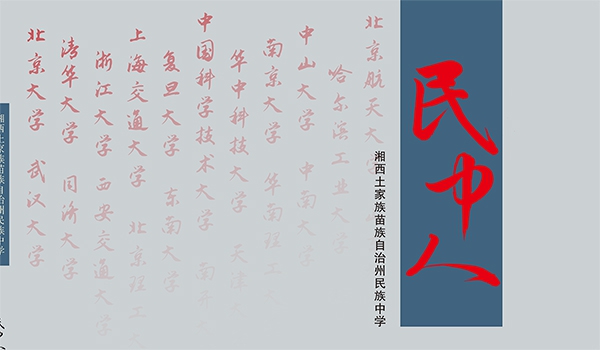 民中人
湘西土家族苗族自治州民族中学
北京大学 武汉大学
清华大学 同济大学
浙江大学 西安交通大学
上海交通大学 北京理工
复旦大学 东南大学
中国科学技术大学 南开
华中科技大学 天津
南京大学 华南理工
中山大学 中南大学
哈尔滨工业大学
北京航天大学
湘西土家族苗族自治州民族中学